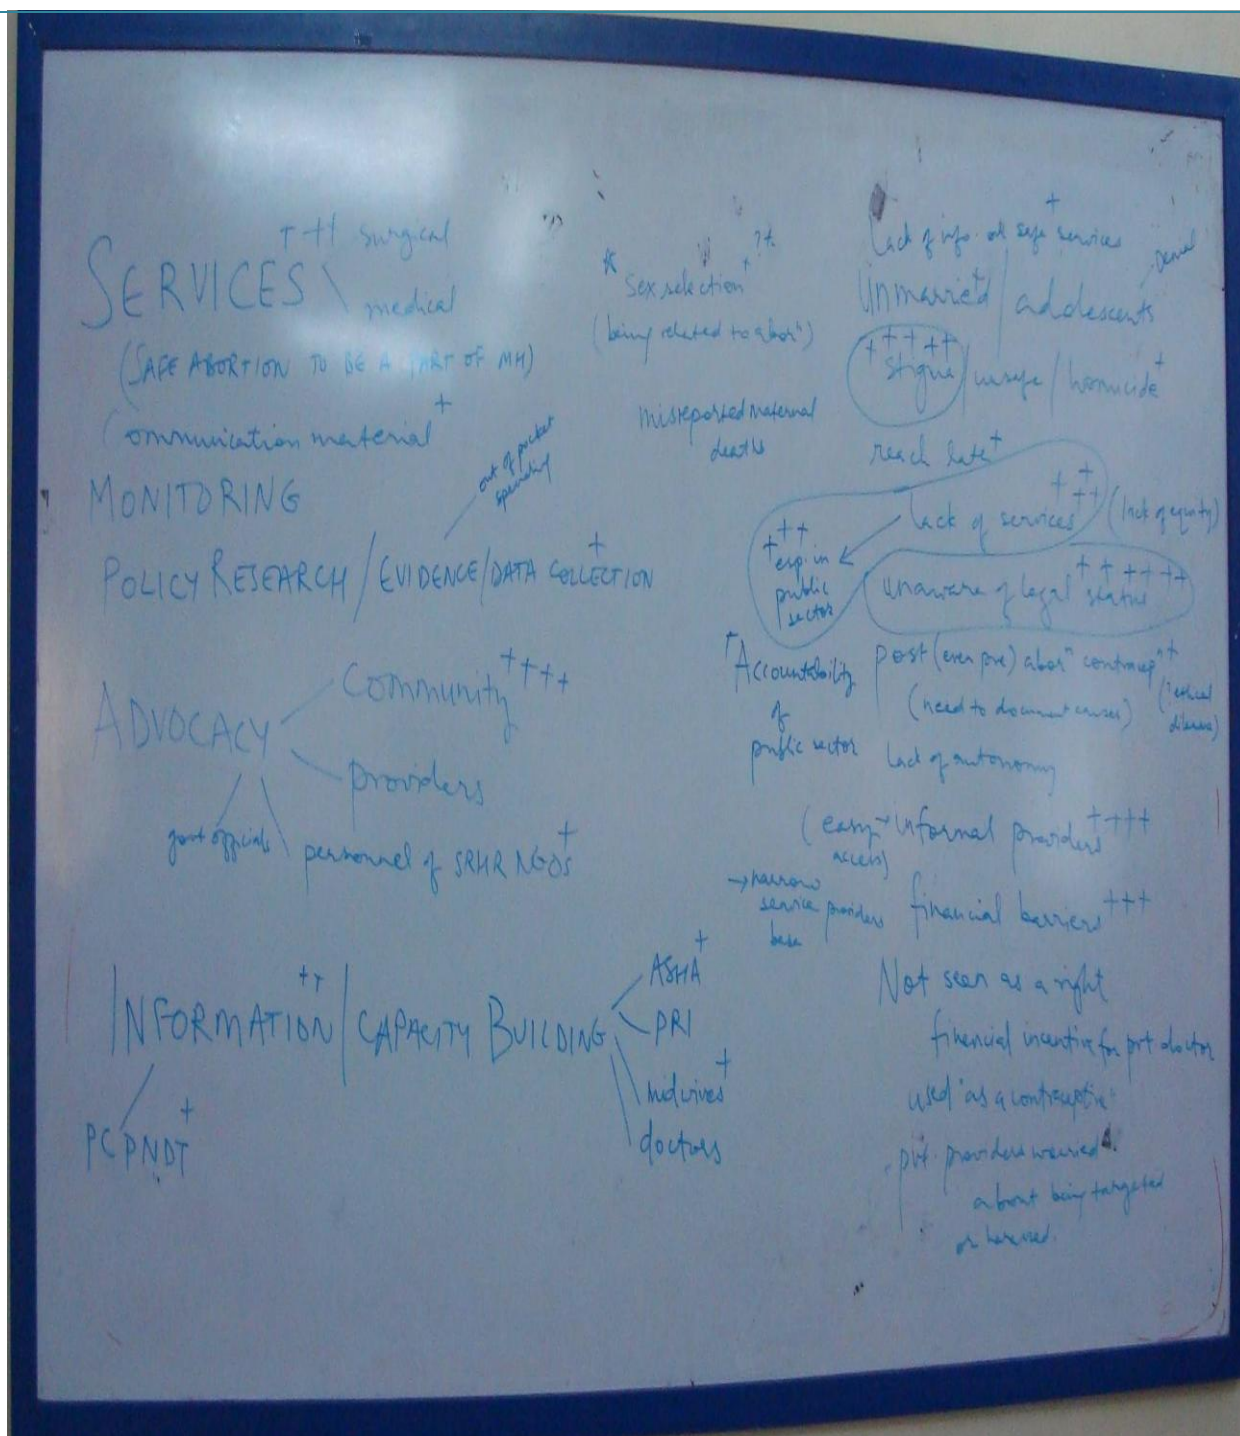 SERVICES +++ surgical
medical
(SAFE ABORTION TO BE A PART OF MH)
Communication material +
MONITORING
out of pocket
spending
POLICY RESEARCH / EVIDENCE / DATA COLLECTION +
ADVOCACY
Community ++++
providers
govt officials
personnel of SRHR NGOs +
INFORMATION ++ / CAPACITY BUILDING
ASHA +
PRI
midwives +
doctors
PCPNDT +
* Sex selection + ?+
(being related to aborⁿ)
misreported maternal
deaths
Lack of info. safe services +
Unmarried + / adolescents
denial
+++++
Stigma / unsafe / homicide +
reach late +
lack of services ++++ (lack of equity)
+++
esp. in
public
sector
unaware of legal status ++++++
+ Accountability
of
public sector
post (even pre) aborⁿ contracepⁿ +
(need to document causes)
lack of autonomy
(easy
access)
informal providers ++++
→ narrow
service providers
base
financial barriers +++
Not seen as a right
financial incentive for pvt doctor
used as a contraceptive
pvt. providers worried
about being targeted
or harassed.